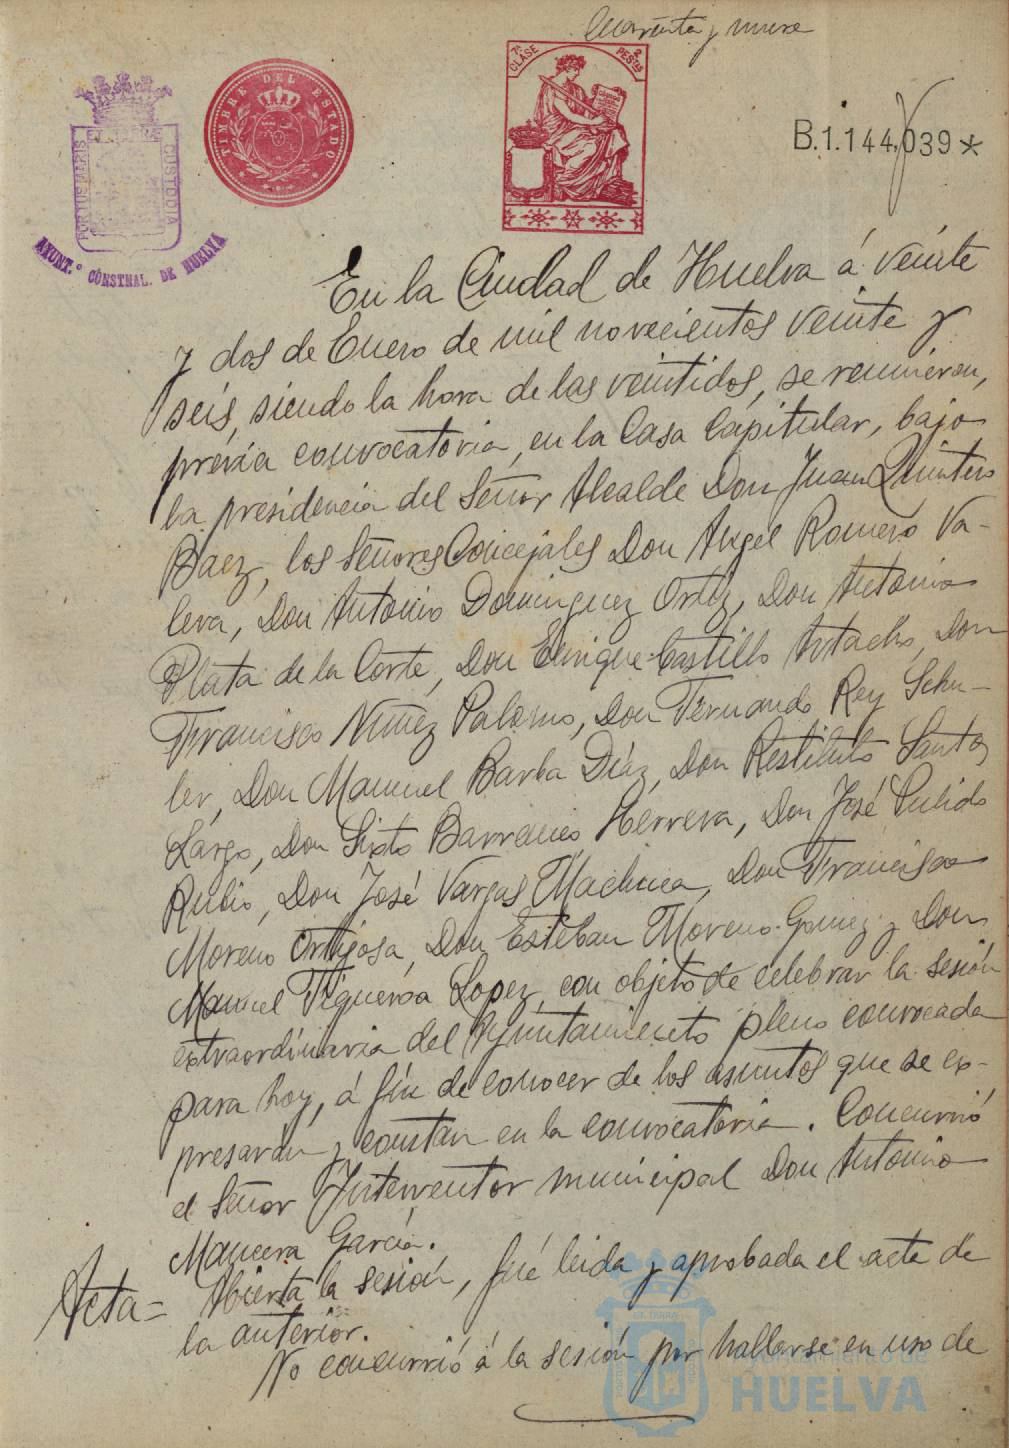 Cuarenta y nueve
7ª CLASE 2 PESTAS
TIMBRE DEL ESTADO
B.1.144.039*
PORTUS MARIS ET TERRAE CUSTODIA
AYUNT.º CONSTNAL. DE HUELVA
En la Ciudad de Huelva á veinte
y dos de Enero de mil novecientos veinte y
seis, siendo la hora de las veintidos, se reunieron,
previa convocatoria, en la Casa Capitular, bajo
la presidencia del Señor Alcalde Don Juan Quintero
Baez, los Señores Concejales Don Angel Romero Va-
lera, Don Antonio Dominguez Ortiz, Don Antonio
Plata de la Corte, Don Enrique Castillo Artacho, Don
Francisco Nuñez Palomo, Don Fernando Rey Schu-
ler, Don Manuel Barba Díaz, Don Restituto Santos
Largo, Don Sixto Barranco Herrera, Don José Pulido
Rubio, Don José Vargas Machuca, Don Francisco
Moreno Ortijosa, Don Esteban Moreno Gomez y Don
Manuel Figueroa Lopez, con objeto de celebrar la sesión
extraordinaria del Ayuntamiento pleno convocada
para hoy, á fin de conocer de los asuntos que se ex-
presarán y constan en la convocatoria. Concurrió
el Señor Interventor municipal Don Antonio
Mancera García.
Acta= Abierta la sesión, fué leida y aprobada el acta de
la anterior.
No concurrió á la sesión por hallarse en uso de
Ayuntamiento de
HUELVA